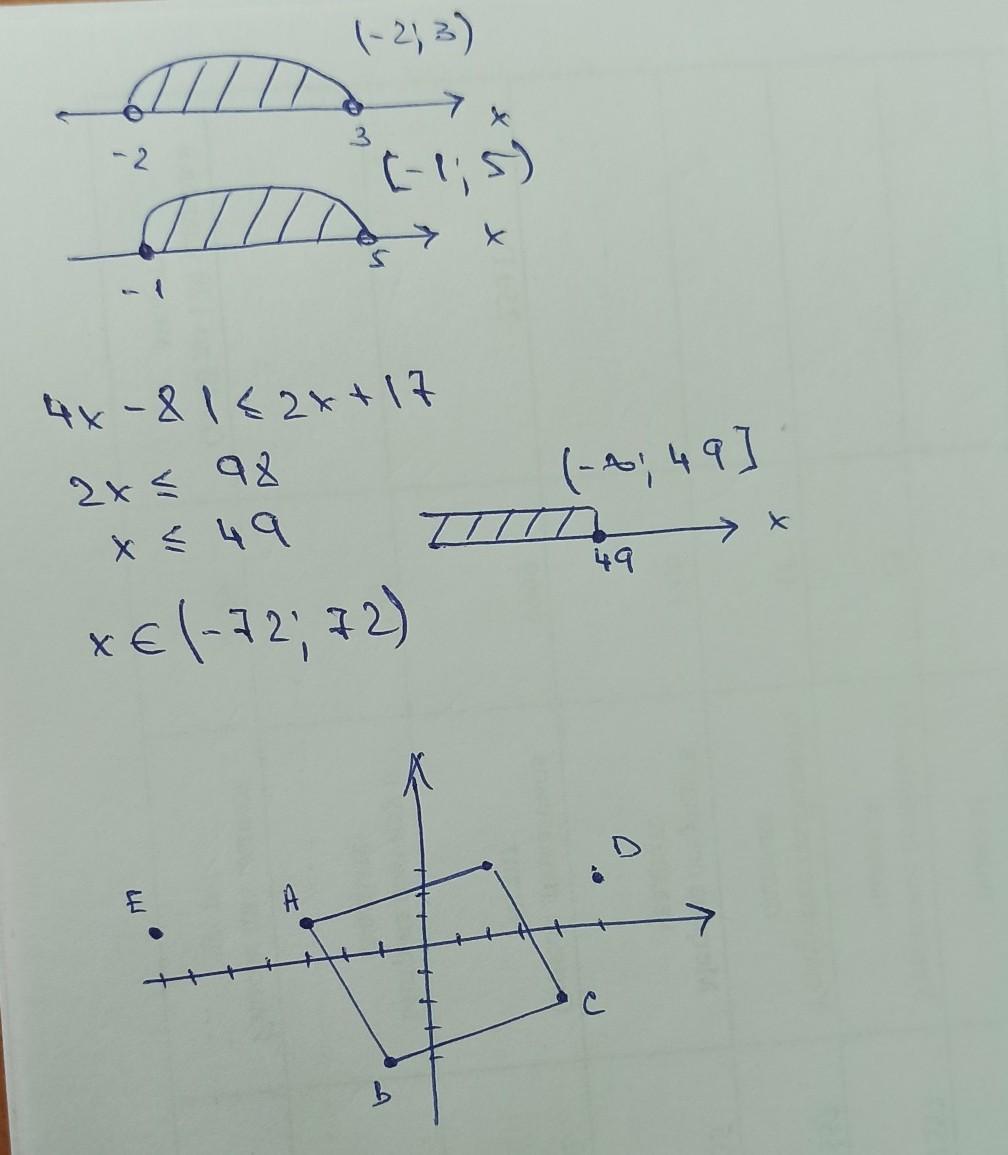 (-2; 3)
x
-2
3
[-1; 5)
x
-1
5
4x - 81 ≤ 2x + 17
2x ≤ 98
x ≤ 49
(-∞; 49]
x
49
x ∈ (-72; 72)
D
E
A
C
B